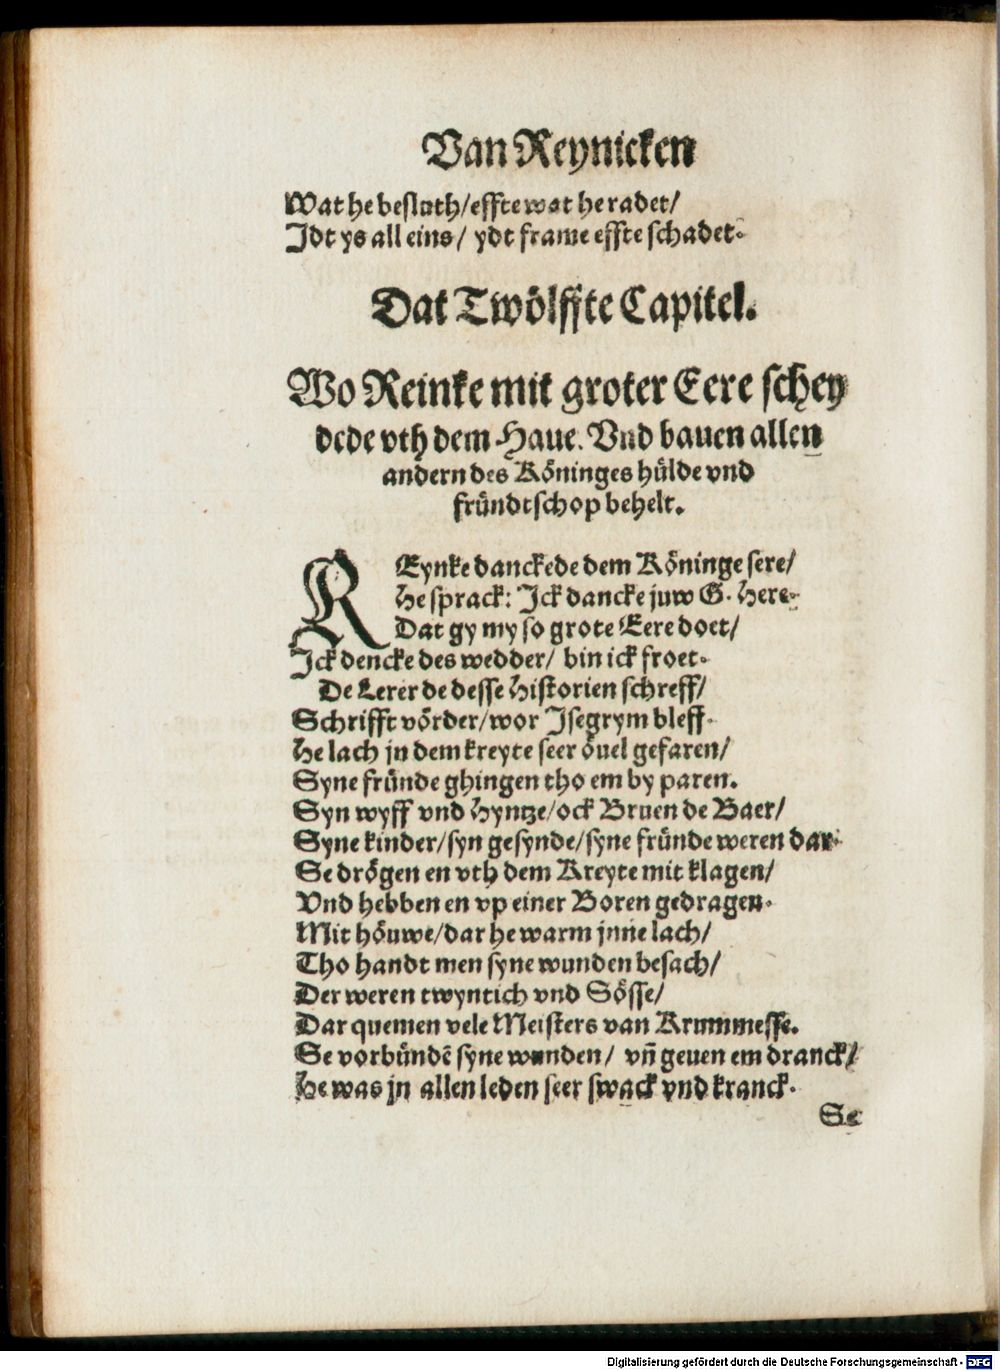 Van Reynicken
Wat he besluth/ effte wat he radet/
Jdt ys all eins/ ydt frame effte schadet.
Dat Twölffte Capitel.
Wo Reinke mit groter Eere schey
dede vth dem Haue. Vnd bauen allen
andern des Köninges hülde vnd
fründtschop behelt.
REynke danckede dem Köninge sere/
He sprack: Jck dancke juw G. Here.
Dat gy my so grote Eere doet/
Jck dencke des wedder/ bin ick froet.
De Lerer de desse Historien schreff/
Schrifft vörder/ wor Jsegrym bleff.
He lach jn dem kreyte seer öuel gefaren/
Syne fründe ghingen tho em by paren.
Syn wyff vnd Hyntze/ ock Bruen de Baer/
Syne kinder/ syn gesynde/ syne fründe weren dar.
Se drögen en vth dem Kreyte mit klagen/
Vnd hebben en vp einer Boren gedragen.
Mit höuwe/ dar he warm jnne lach/
Tho handt men syne wunden besach/
Der weren twyntich vnd Sösse/
Dar quemen vele Meisters van Krummesse.
Se vorbündē syne wunden/ vñ geuen em dranck/
He was jn allen leden seer swack vnd kranck.
Se
Digitalisierung gefördert durch die Deutsche Forschungsgemeinschaft - DFG